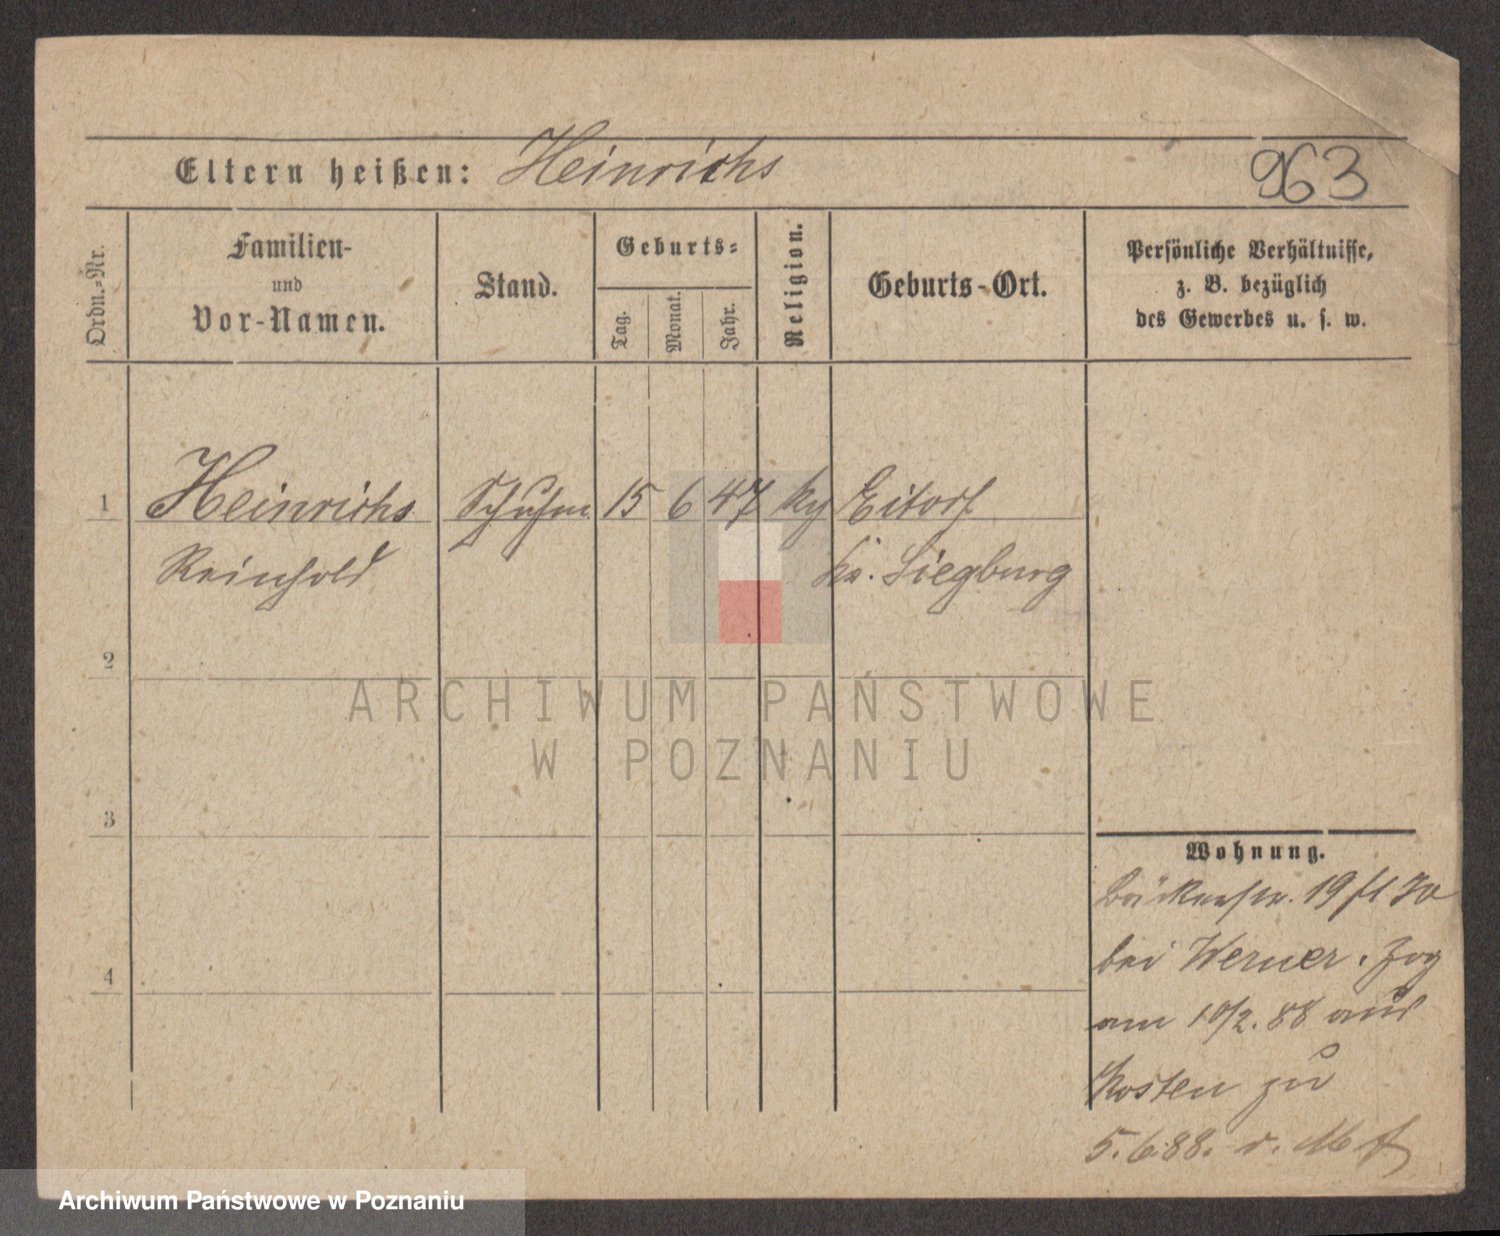 Eltern heißen: Heinrichs
963
Ordn.-Nr.
Familien-
und
Vor-Namen.
Stand.
Geburts-
Tag.
Monat.
Jahr.
Religion.
Geburts-Ort.
Persönliche Verhältnisse,
z. B. bezüglich
des Gewerbes u. s. w.
1 Heinrichs Schuhm 15 6 47 Eitorf
Reinhold Kr. Siegburg
2
3
4
ARCHIWUM PAŃSTWOWE
W POZNANIU
Wohnung.
Bäckerstr. 19
bei Werner. Zog
am 10/2. 88 aus
Kosten zu
5. 6. 88. v.
Archiwum Państwowe w Poznaniu